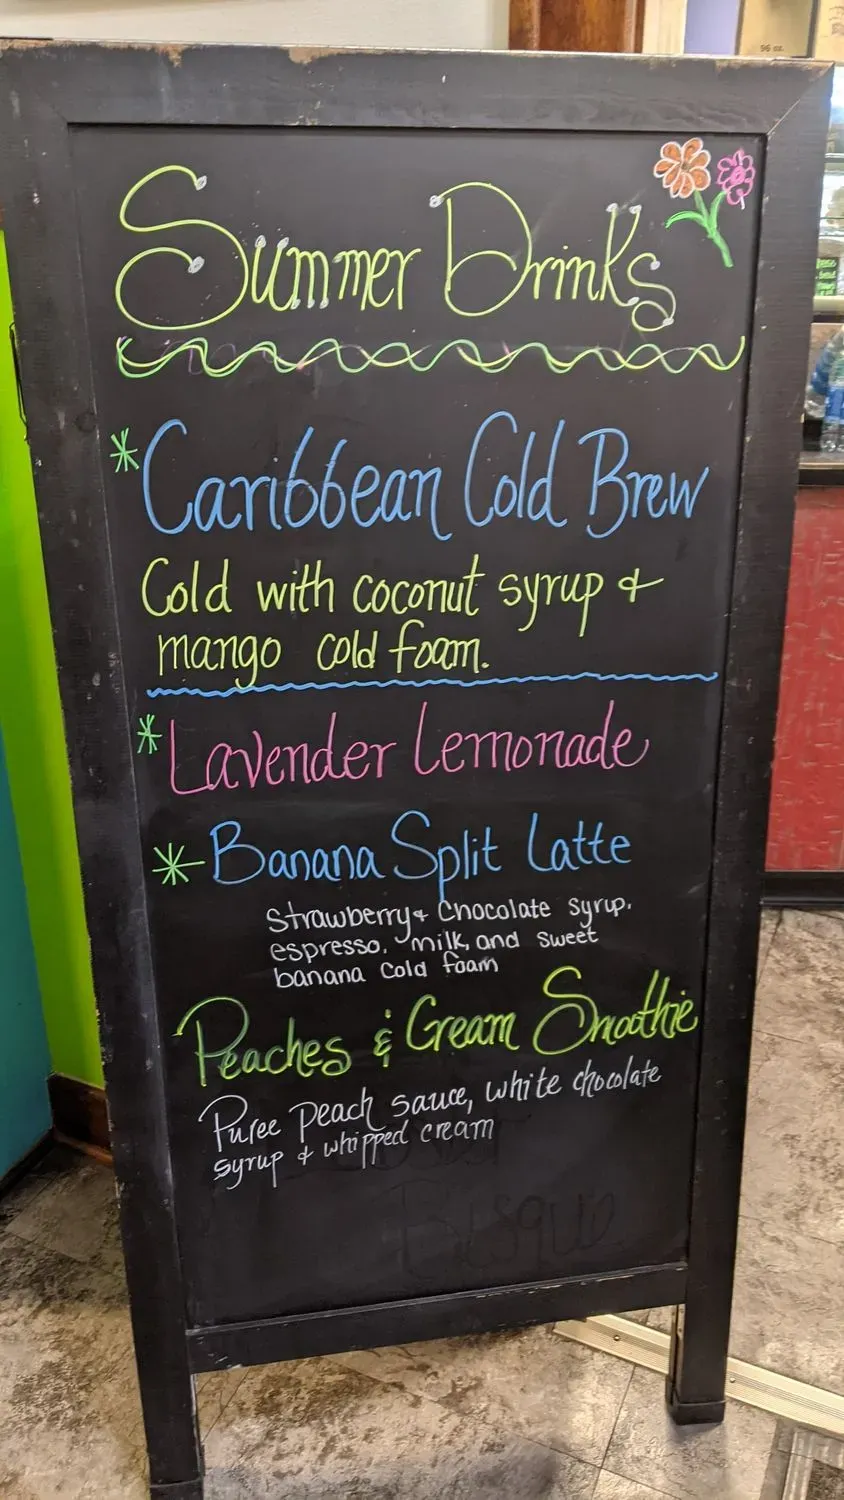 96 oz.
Summer Drinks
* Caribbean Cold Brew
Cold with coconut syrup &
mango cold foam.
* Lavender Lemonade
* Banana Split Latte
Strawberry & Chocolate syrup,
espresso, milk, and sweet
banana cold foam
Peaches & Cream Smoothie
Puree peach sauce, white chocolate
syrup & whipped cream
Bisque